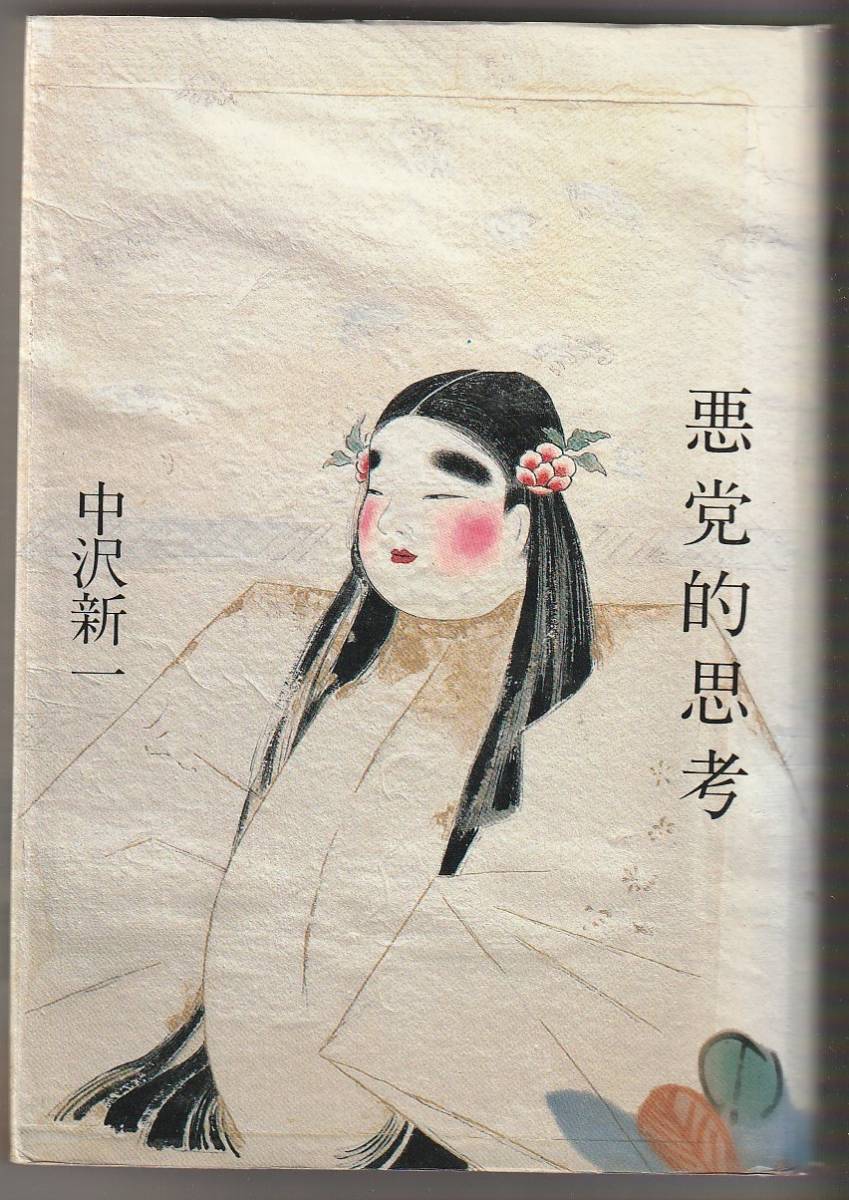 悪党的思考
中沢新一